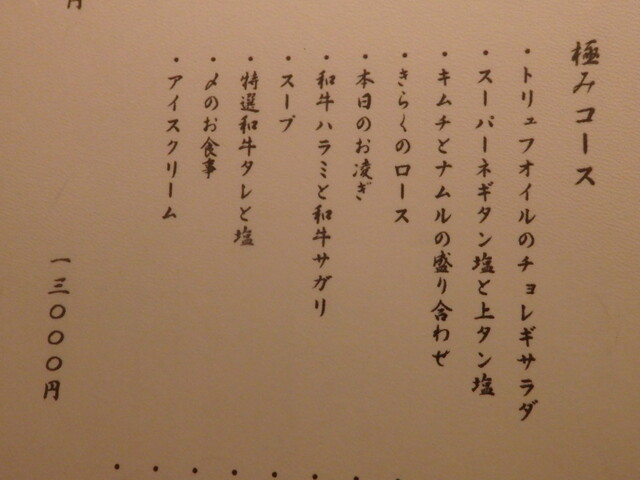 極みコース
・トリュフオイルのチョレギサラダ
・スーパーネギタン塩と上タン塩
・キムチとナムルの盛り合わせ
・きらくのロース
・本日のお凌ぎ
・和牛ハラミと和牛サガリ
・スープ
・特選和牛タレと塩
・〆のお食事
・アイスクリーム
一三〇〇〇円
円